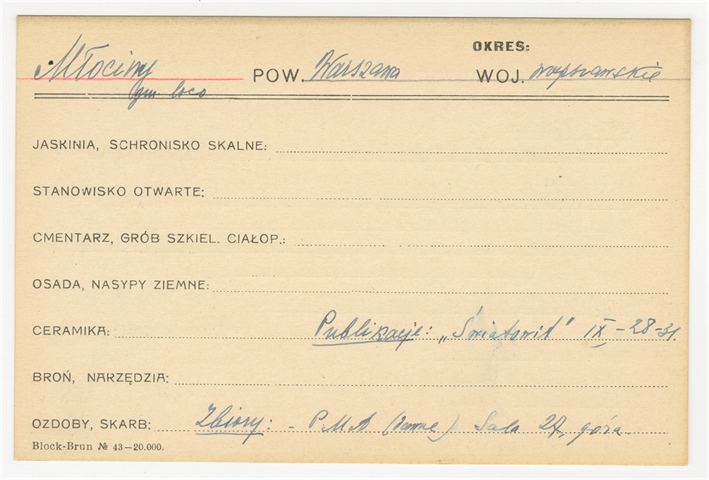 OKRES:
Młociny POW. Warszawa WOJ. warszawskie
gm. loco
JASKINIA, SCHRONISKO SKALNE:
STANOWISKO OTWARTE:
CMENTARZ, GRÓB SZKIEL. CIAŁOP.:
OSADA, NASYPY ZIEMNE:
CERAMIKA: Publikacje: „Światowit" IX – 28-31.
BROŃ, NARZĘDZIA:
OZDOBY, SKARB: Zbiory: - P M A Sala 27, góra
Block-Brun № 43—20.000.